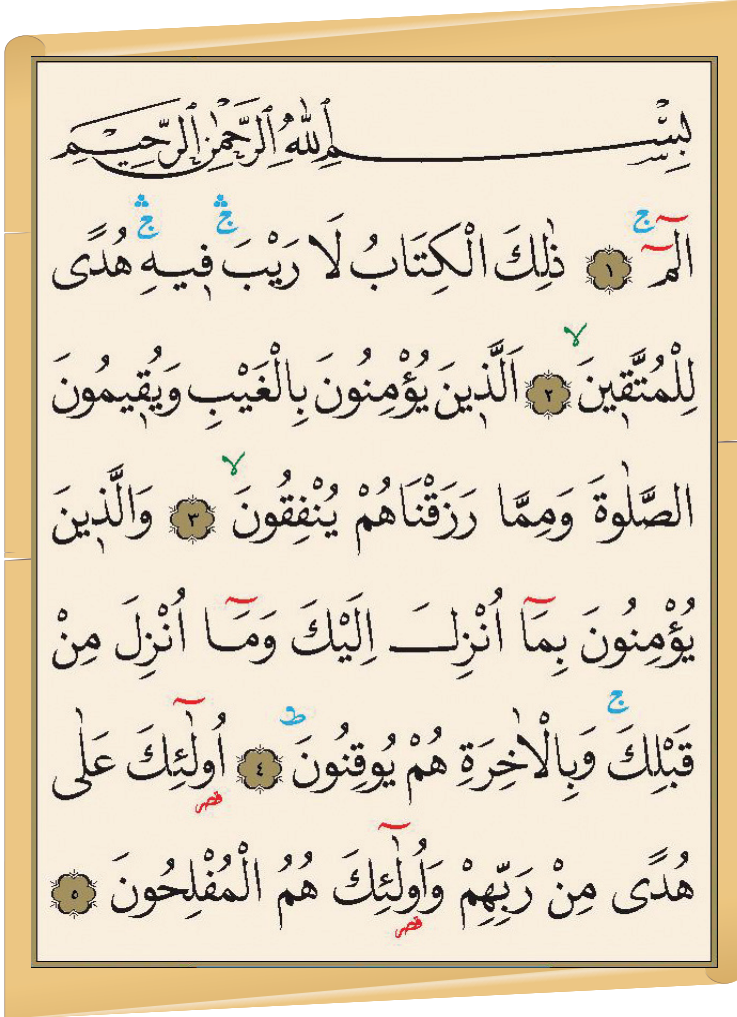 بِسْــــمِ اللهِ الرَّحْمٰنِ الرَّحِيمِ
الٓمٓ ۚ ﴿١﴾ ذٰلِكَ الْكِتَابُ لَا رَيْبَ ۛ فِيهِ ۛ هُدًى
لِلْمُتَّقِينَ ۙ ﴿٢﴾ اَلَّذِينَ يُؤْمِنُونَ بِالْغَيْبِ وَيُقِيمُونَ
الصَّلٰوةَ وَمِمَّا رَزَقْنَاهُمْ يُنْفِقُونَ ۙ ﴿٣﴾ وَالَّذِينَ
يُؤْمِنُونَ بِمَٓا اُنْزِلَ اِلَيْكَ وَمَٓا اُنْزِلَ مِنْ
قَبْلِكَ ۚ وَبِالْاٰخِرَةِ هُمْ يُوقِنُونَ ۜؕ ﴿٤﴾ اُولٰٓئِكَ عَلٰى
قصر
هُدًى مِنْ رَبِّهِمْ وَاُولٰٓئِكَ هُمُ الْمُفْلِحُونَ ﴿٥﴾
قصر